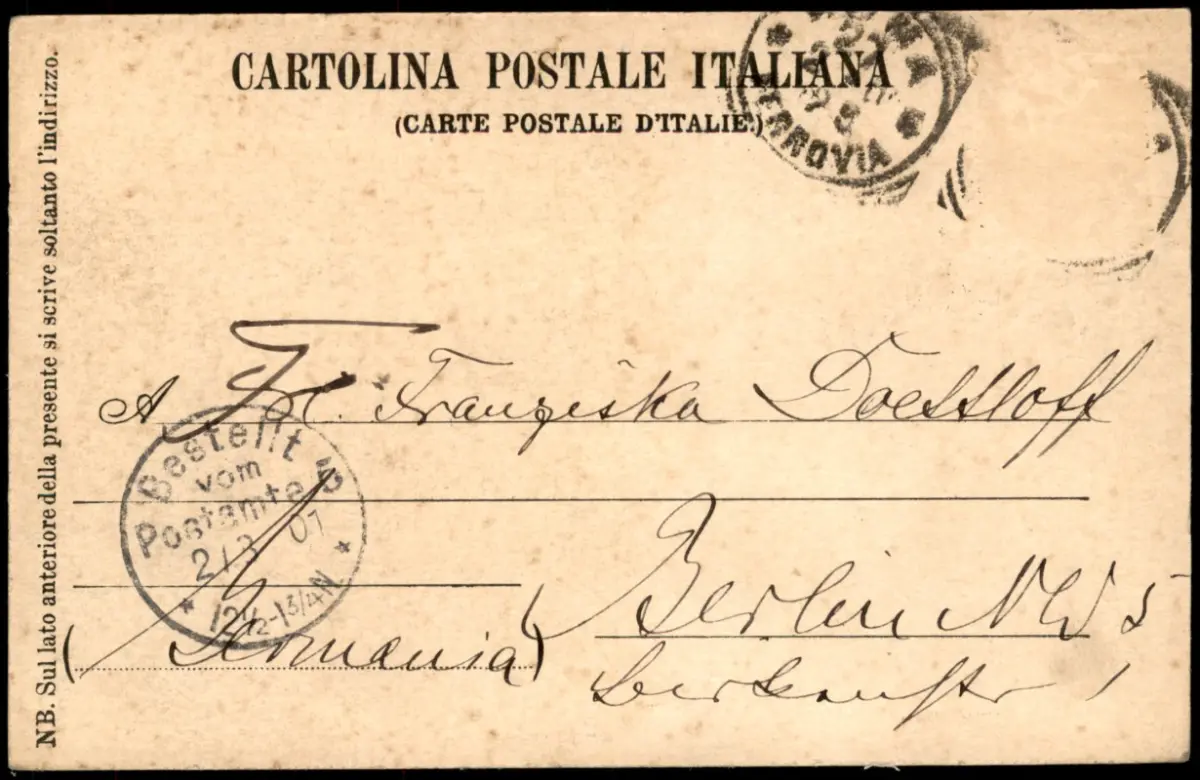 CARTOLINA POSTALE ITALIANA
(CARTE POSTALE D'ITALIE.)
FERROVIA
NB. Sul lato anteriore della presente si scrive soltanto l'indirizzo.
A Frl. Franziska
Bestellt
vom
Postamte 5
2/3 01
12½-1¾N
Berlin NW 5
(Germania)